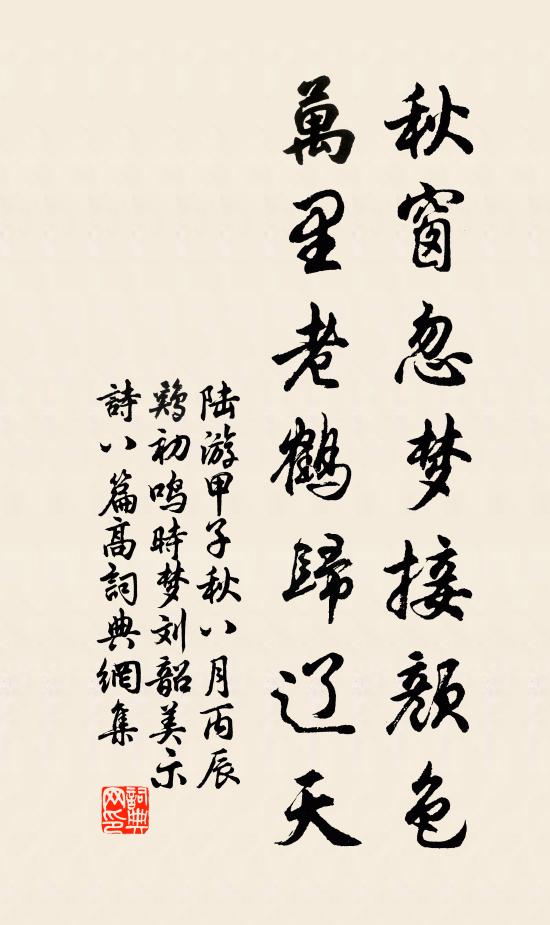 秋窗忽梦接颜色
萬里老鶴歸辽天
陆游甲子秋八月丙辰
鷄初鸣時梦刘韶美示
詩八篇高詞典網集
詞典
网印